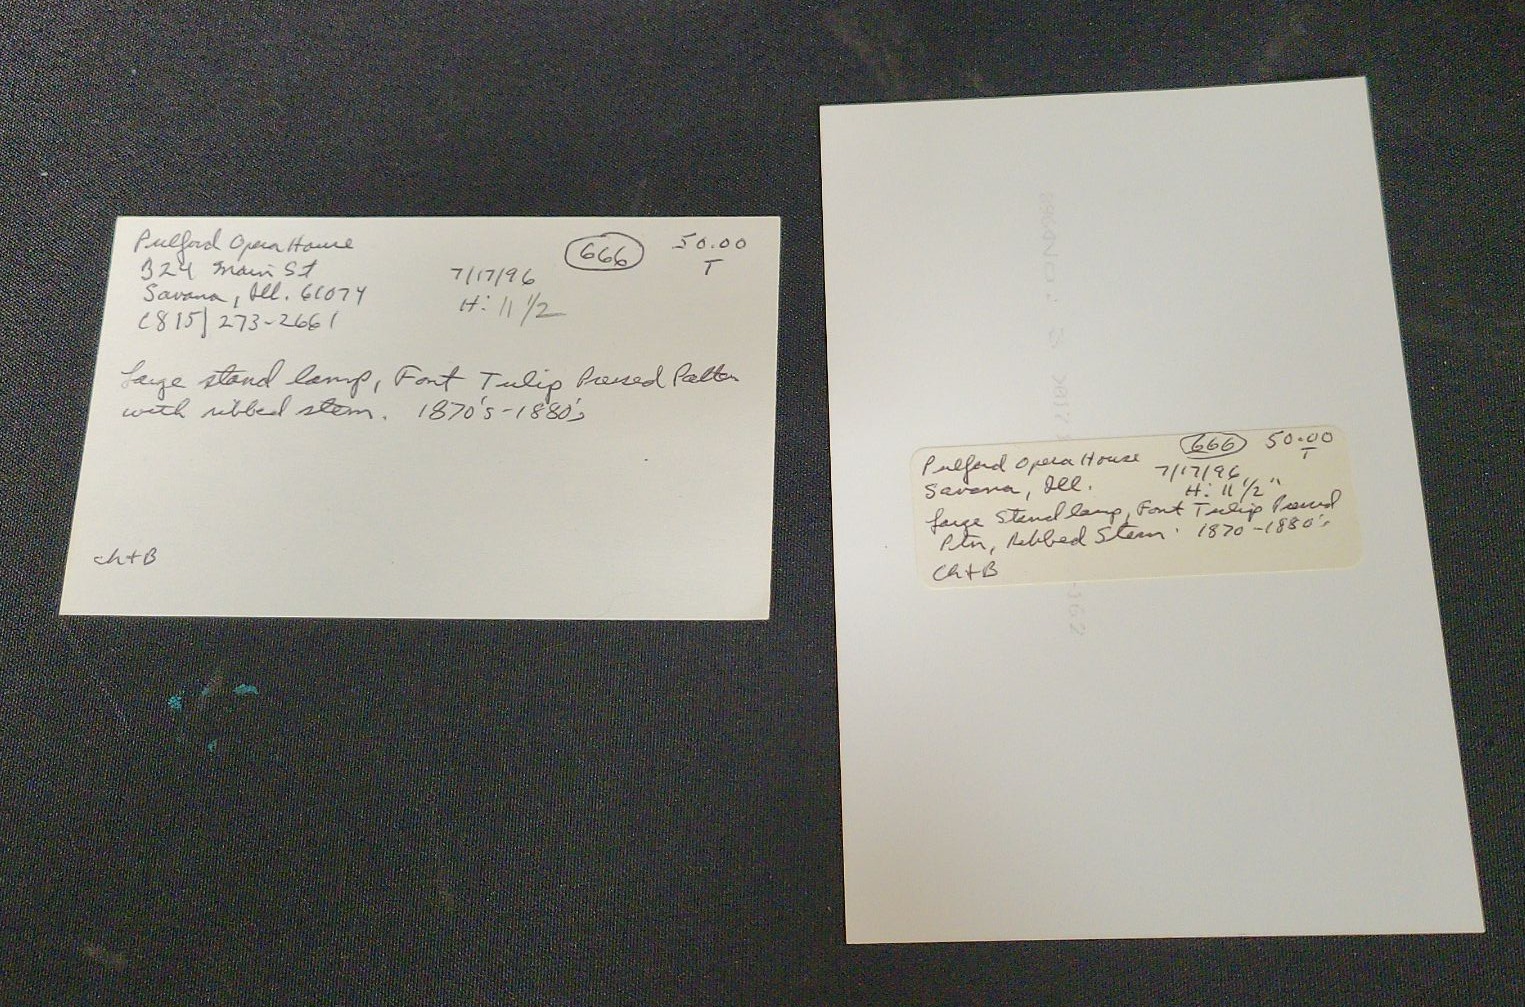 Pulford Opera House
324 Main St
Savana, Ill. 61074
(815) 273-2661
7/17/96
H: 11 1/2
666
50.00
T
Large stand lamp, Font Tulip Pressed Pattern
with ribbed stem. 1870's-1880's
Ch+B
666 50.00
T
Pulford Opera House 7/17/96
Savana, Ill. H: 11 1/2"
Large Stand lamp, Font Tulip Pressed
Ptn, Ribbed Stem. 1870-1880's
Ch+B